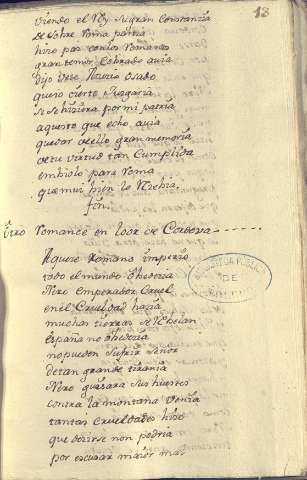 13
viendo el Rey su gran Constanzia
de sobre Roma partia
hizo paz con los Romanos
gran temor Cobrado avia
dijo vete, osado
quiero cierto
se se hiziera por mi patria
aquesto que echo avia
quedar dello gran memoria
de tu virtud tan Cumplida
embiolo para Roma
que mui bien lo
fin.
Otro Romance en loor de Cordova
Aquese Romano imperio
todo el mundo obedezia
Nero emperador Cruel
en el Crueldad hazia
muchas tierras se
españa no obedezia
no pueden sufrir Señor
de tan grande tirania
Nero sus huestes
contra la montaña venia
tantas Crueldades hizo
que dezirse non podria
por escusar maior mal
BIBLIOTECA PUBLICA
DE